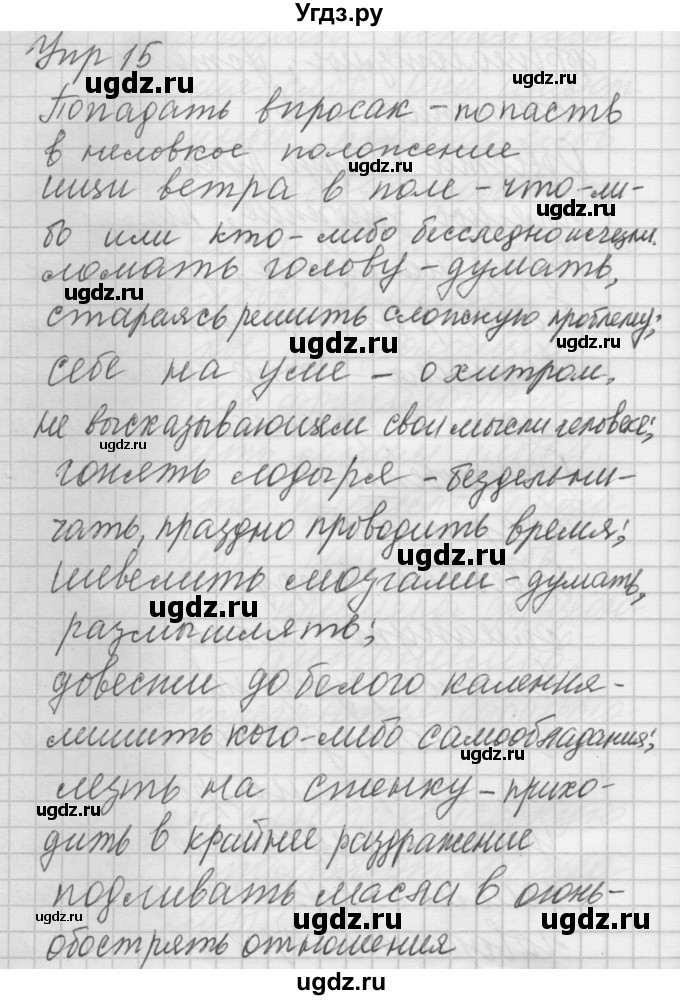 Угдз.ру
Упр 15
ugdz.ru
ugdz.ru
Попадать впросак - попасть
в неловкое положение
ugdz.ru
ищи ветра в поле - что-ли-
ugdz.ru
бо или кто-либо бесследно исчезли.
ломать голову - думать,
ugdz.ru
стараясь решить сложную проблему;
ugdz.ru
ugdz.ru
себе на уме - о хитром,
не высказывающем свои мысли человеке;
ugdz.ru
гонять лодыря - бездельни-
чать, праздно проводить время;
ugdz.ru
шевелить мозгами - думать,
ugdz.ru
размышлять;
довести до белого каления -
лишить кого-либо самообладания;
ugdz.ru
лезть на стенку - прихо-
ugdz.ru
дить в крайнее раздражение
подливать масла в огонь -
ugdz.ru
ugdz.ru
ugdz.ru
обострять отношения
ugdz.ru